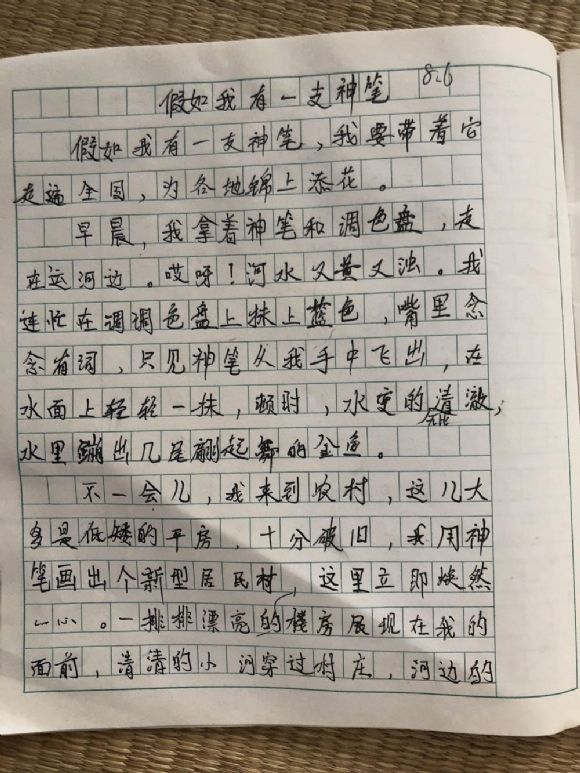 假如我有一支神笔 8.6
假如我有一支神笔，我要带着它
走遍全国，为各地锦上添花。
早晨，我拿着神笔和调色盘，走
在运河边。哎呀！河水又黄又浊。我
连忙在调调色盘上抹上蓝色，嘴里念
念有词，只见神笔从我手中飞出，在
水面上轻轻一抹，顿时，水变的清澈，
水里蹦出几尾翩起舞的金鱼。
不一会儿，我来到农村，这儿大
多是低矮的平房，十分破旧，我用神
笔画出个新型居民村，这里立即焕然
一心。一排排漂亮的楼房展现在我的
面前，清清的小河穿过村庄，河边的